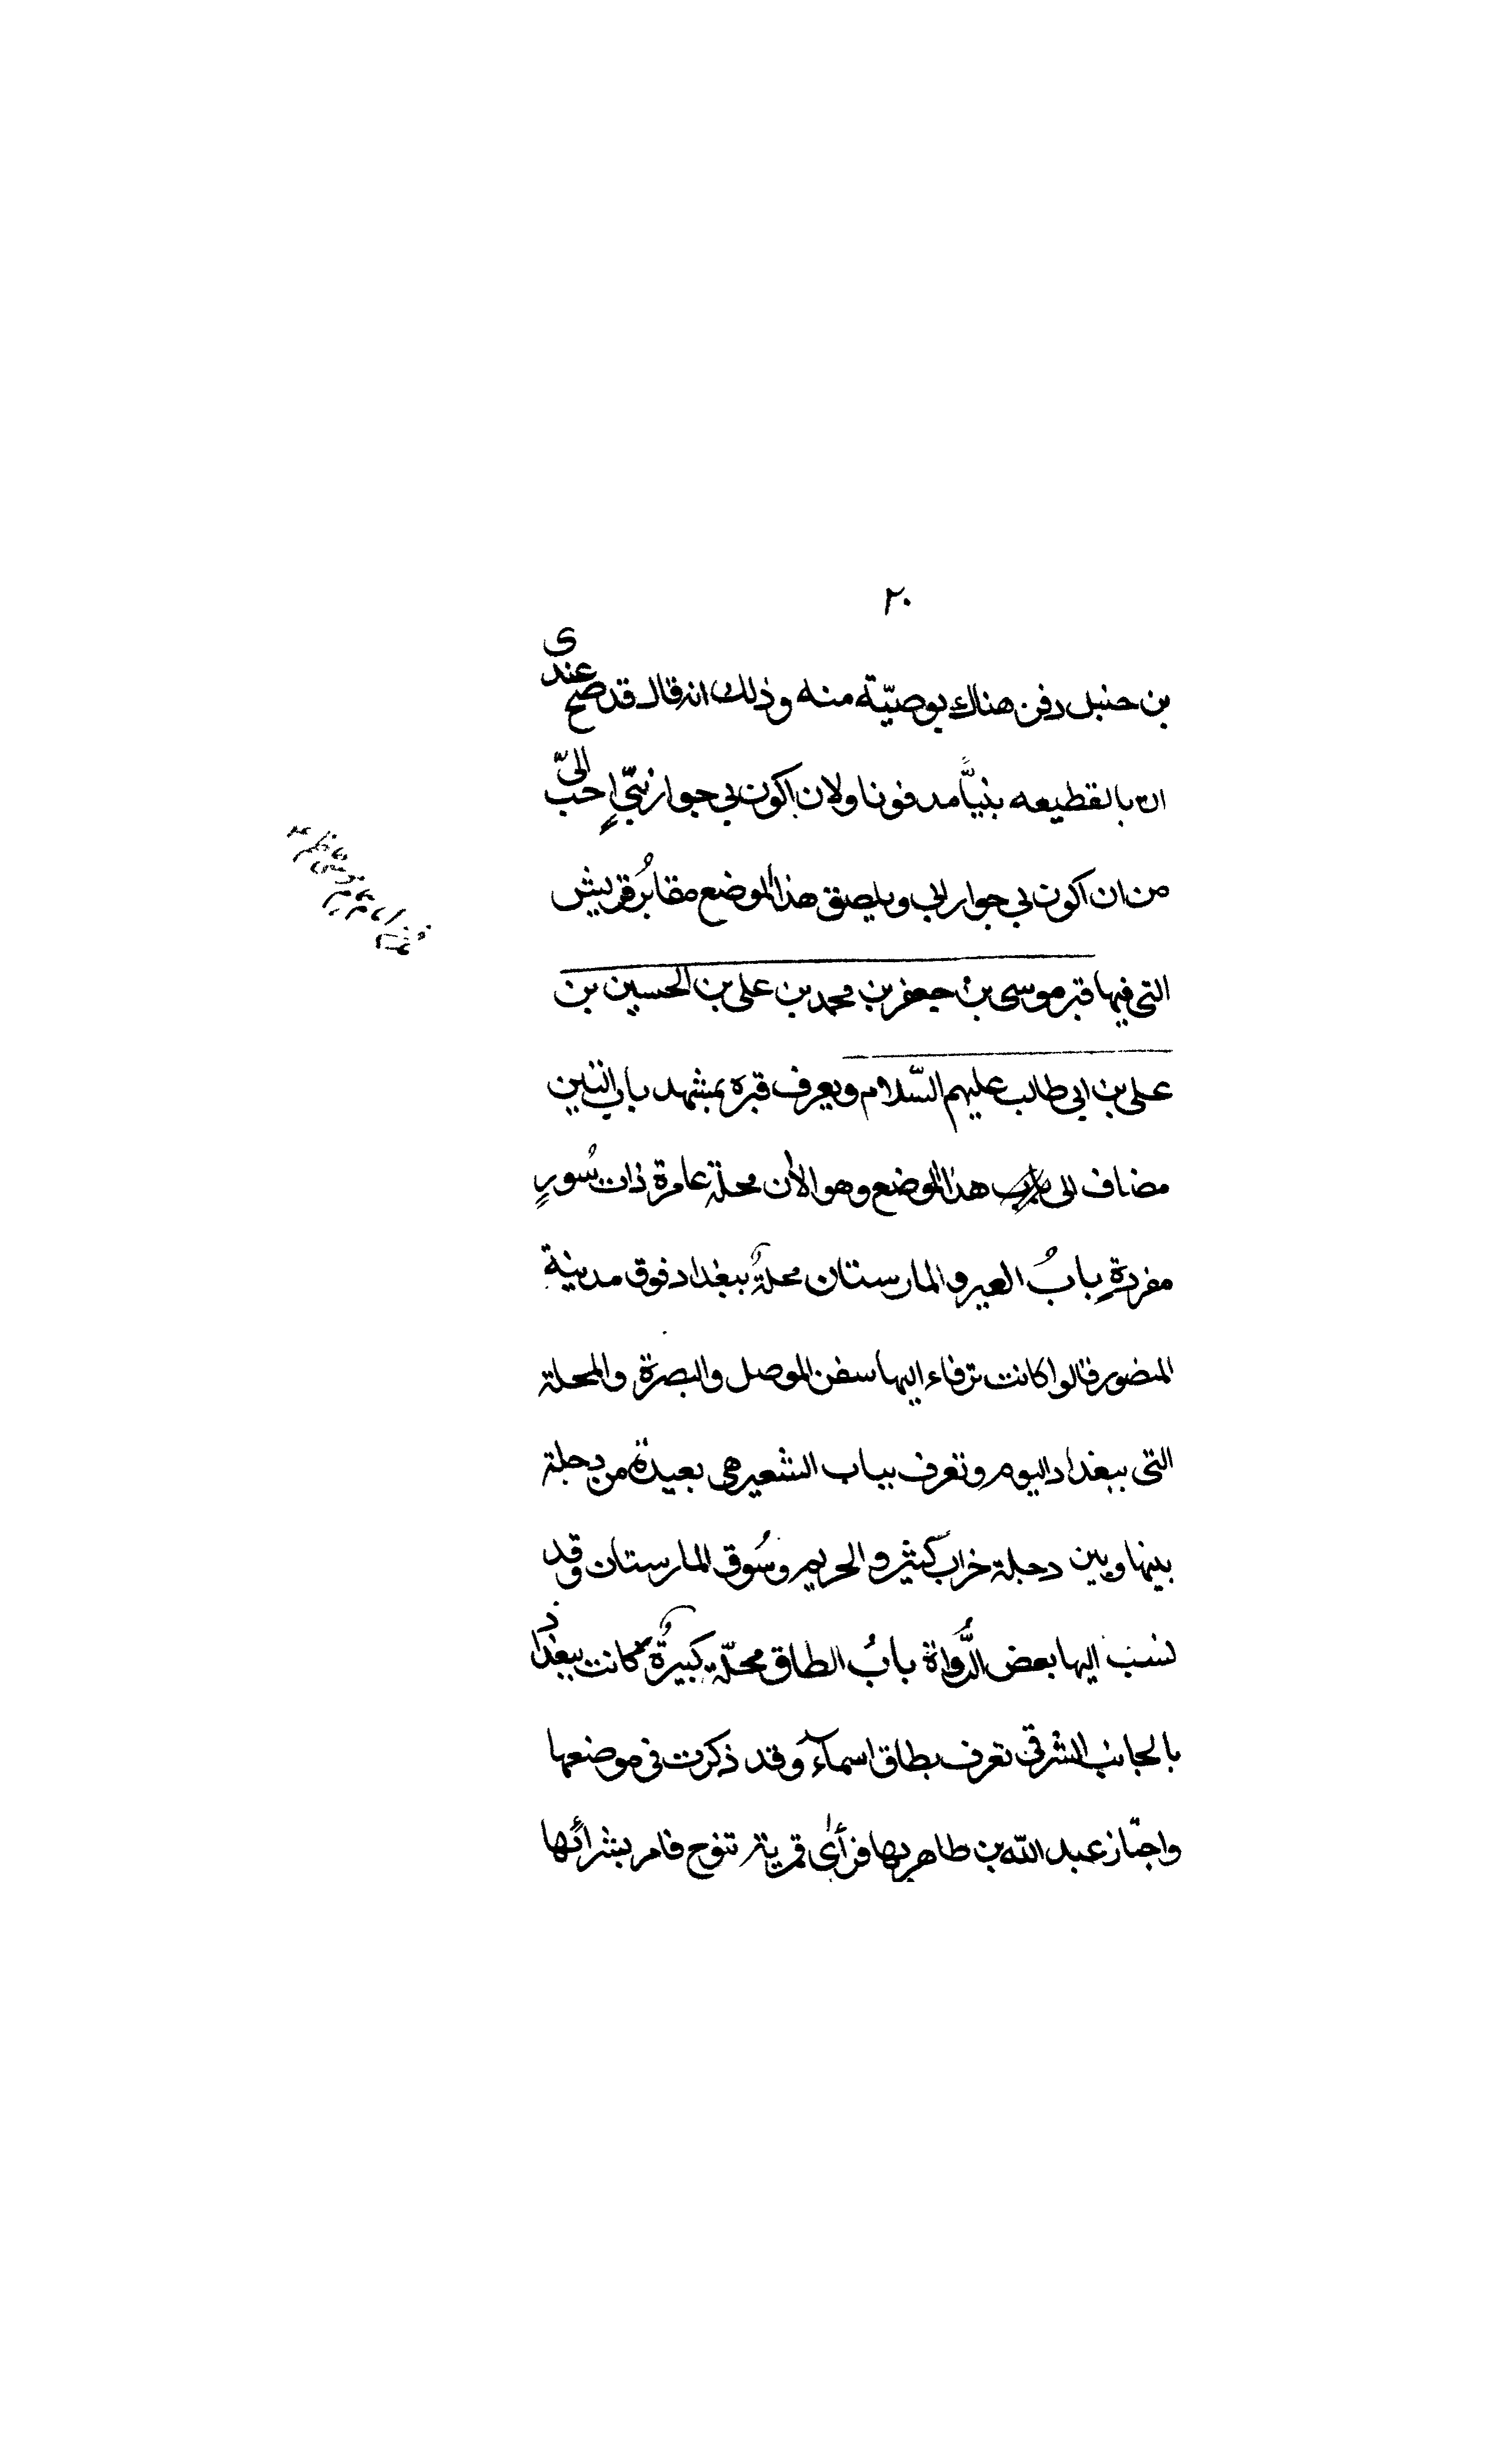 ٢٠
بن حنبل دفن هناك بوصيّة منه وذلك انه قال قد صح عندى
ان بالقطيعه نبيًّا مدفونا ولان اكون بي جوار نبيّ احب الىّ
من ان اكون بي جوار ابي ويلصق هذا الموضع مقابرُ قريش
التى فيها قبر موسى بن جعفر بن محمد بن على بن الحسين بن
على بن ابى طالب عليهم السّلام ويعرف قبره بمشهد باب التين
مضاف الى هذا الموضع وهو الأن محلة عامرة ذات سُورٍ
مفردةٍ بابُ العير والمارستان محلةٌ ببغداد فوق مدينة
المنصور قالوا كانت ترفاء اليها سفن الموصل والبصرة والمحلة
التى ببغداد اليوم وتعرف بباب الشعير هى بعيدة من دجلة
بينها وبين دجلة خراب كثير والحريم وسُوق المارستان وقد
نسب اليها بعض الرُّواة بابُ الطاق محلّة كبيرةٌ كانت ببغداد
بالجانب الشرقى تعرف بطاق اسمآءَ وقد ذكرت فى موضعها
واجتاز عبد الله بن طاهر بها فرأى قمرية تنوح فامر بشرائها